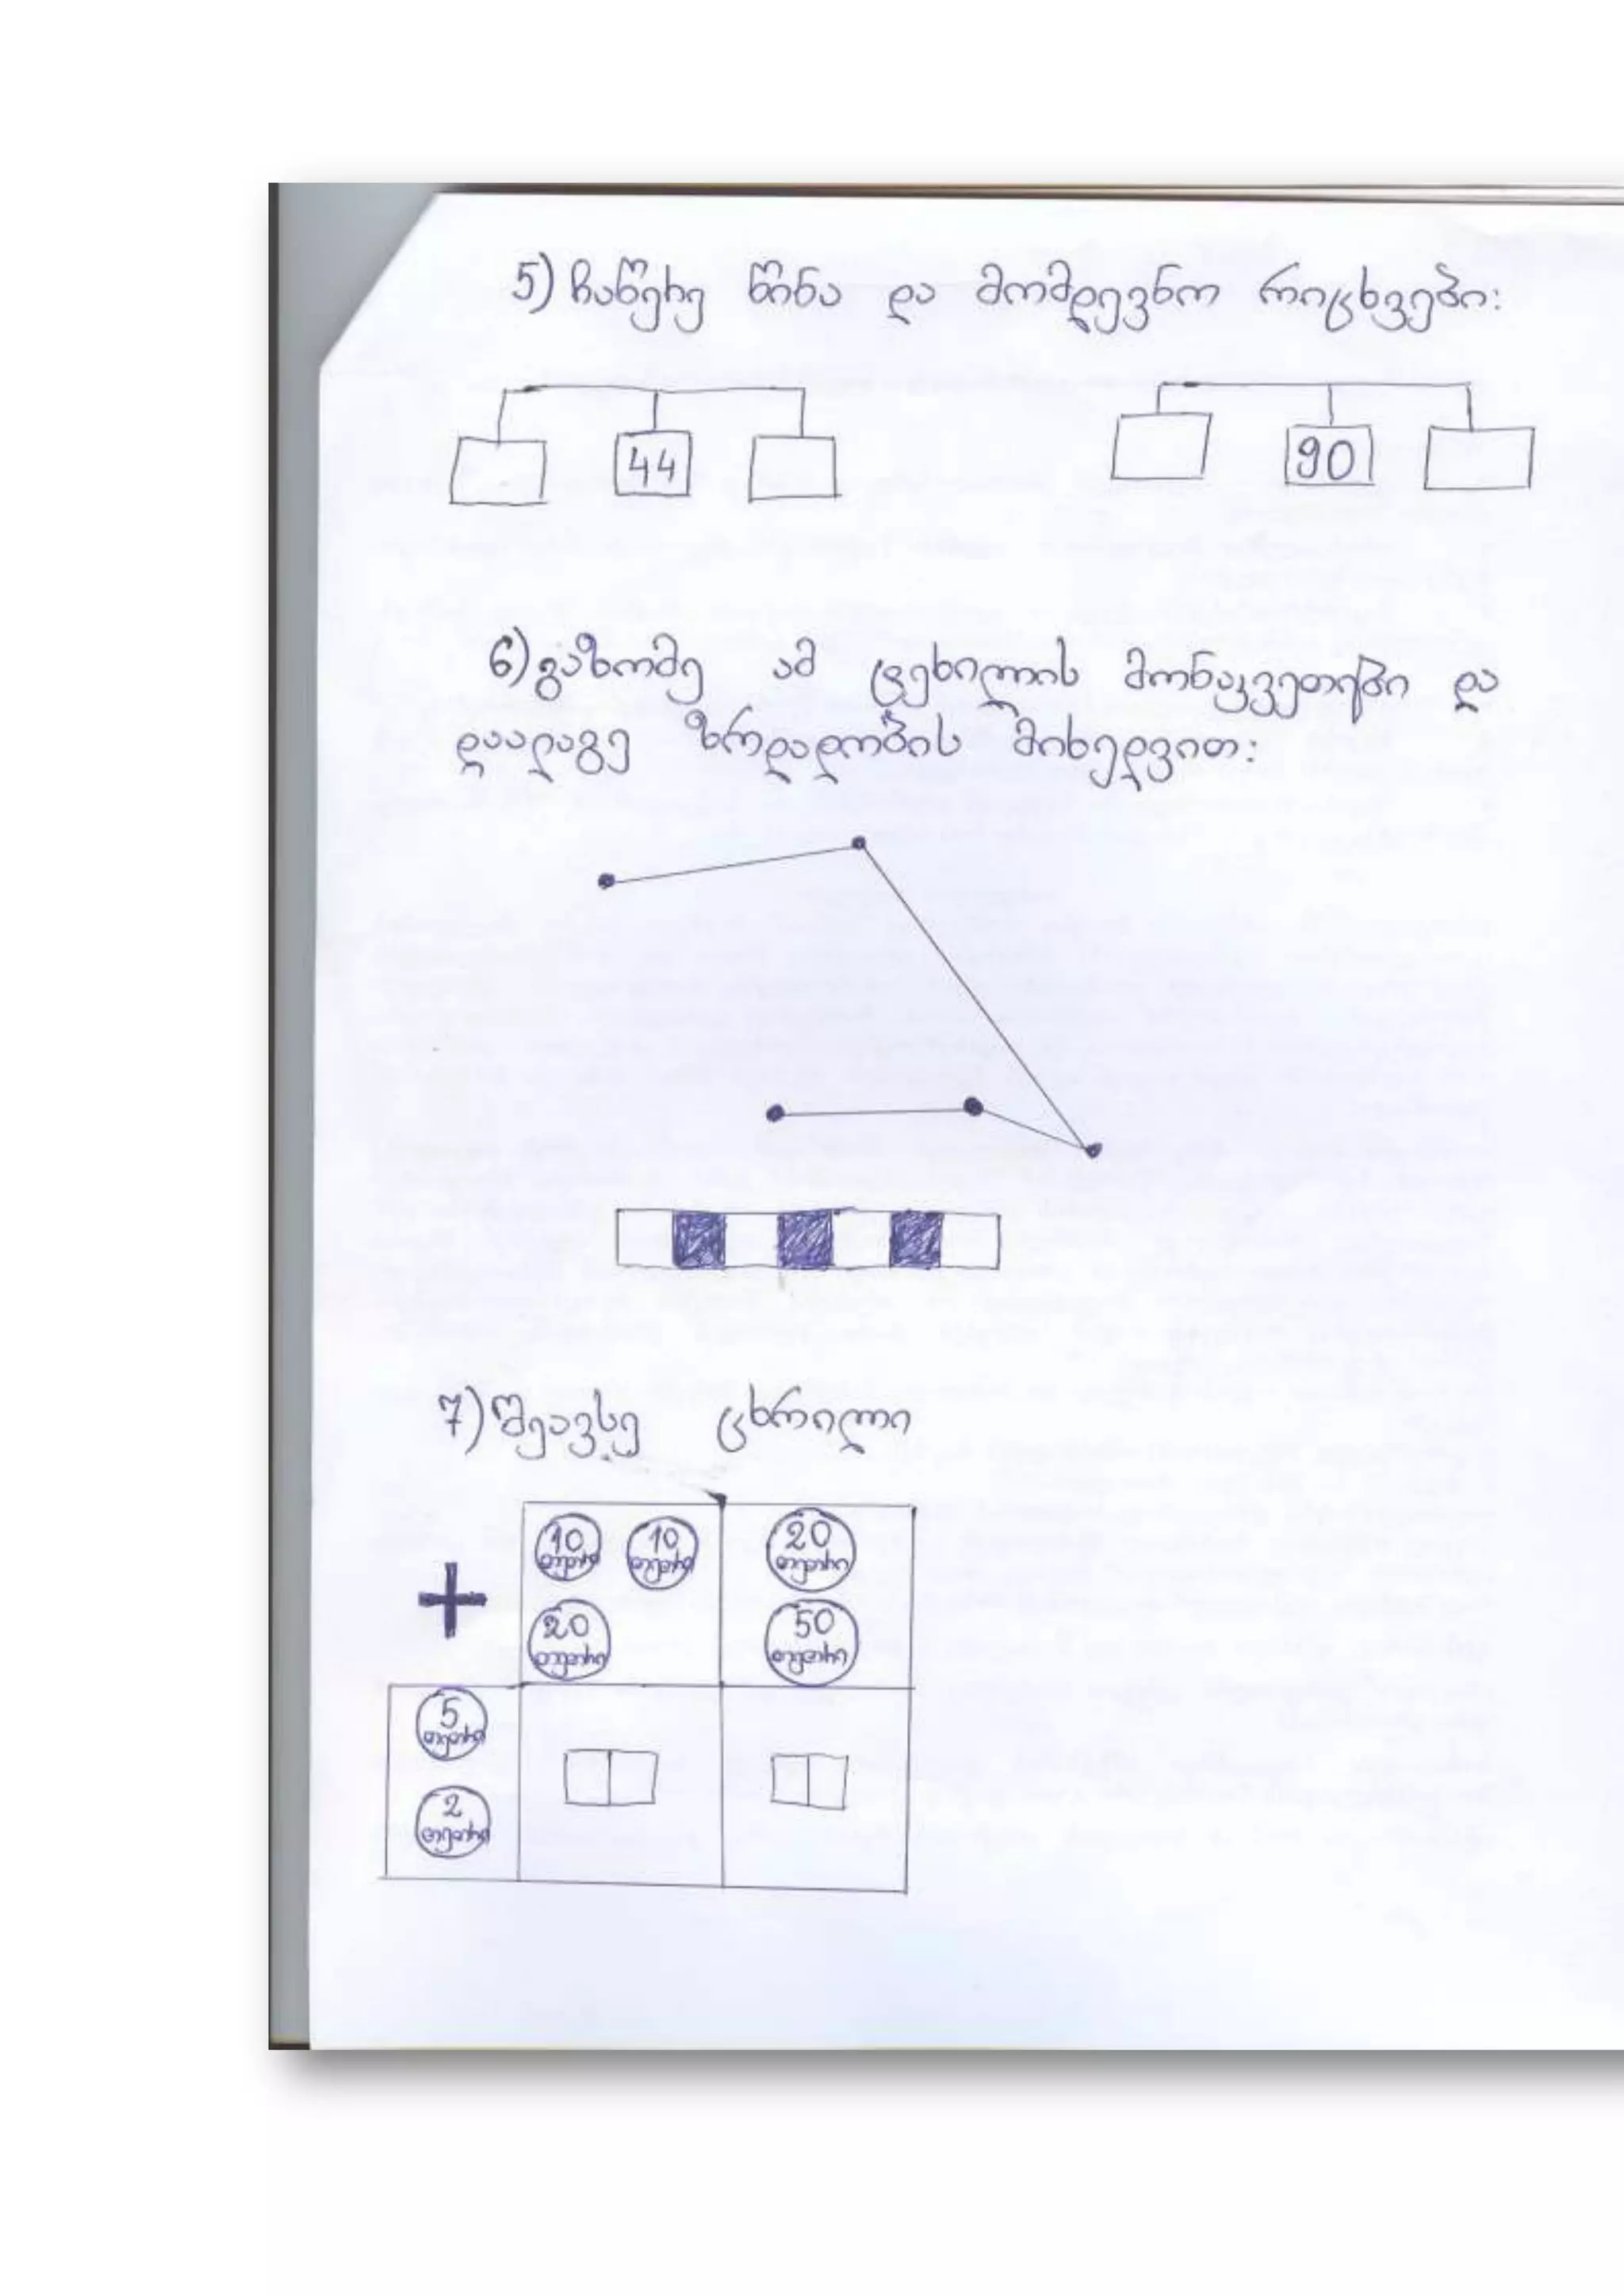 5) ჩაწერე წინა და მომდევნო რიცხვები:
44 90
6) გაზომე ამ ტეხილის მონაკვეთები და
დაალაგე ზრდადობის მიხედვით:
7) შეავსე ცხრილი
10 თეთრი 10 თეთრი 20 თეთრი
+
20 თეთრი 50 თეთრი
5 თეთრი
2 თეთრი